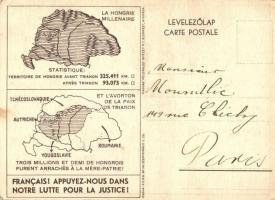 LA HONGRIE
MILLENAIRE
STATISTIQUE:
TERRITOIRE DE HONGRIE AVANT TRIANON 325.411 KM. □
APRÈS TRIANON 93.073 KM. □
ET L'AVORTON
DE LA PAIX
DE TRIANON
TCHÉCOSLOVAQUIE
AUTRICHE
ROUMANIE
YOUGOSLAVIE
TROIS MILLIONS ET DEMI DE HONGROIS
FURENT ARRACHÉS A LA MÈRE-PATRIE!
FRANÇAIS! APPUYEZ-NOUS DANS
NOTRE LUTTE POUR LA JUSTICE!
LEVELEZŐLAP
CARTE POSTALE
Monsieur
149 rue Clichy
Paris